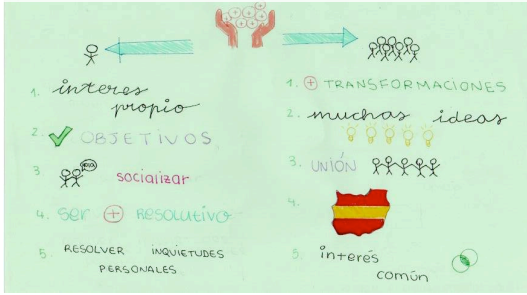 1. interes
propio
2. OBJETIVOS
3. HOLA socializar
4. Ser + RESOLUTIVO
5. RESOLVER INQUIETUDES
PERSONALES
1. + TRANSFORMACIONES
2. muchas ideas
3. UNIÓN
4.
5. interés
común